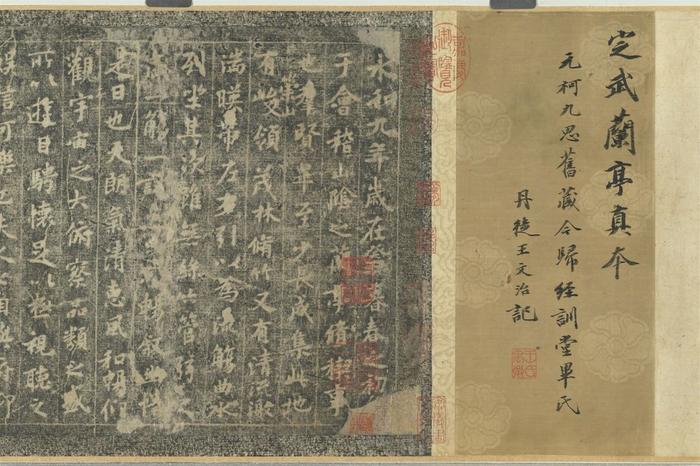 定武蘭亭真本
元柯九思舊藏今歸經訓堂畢氏
丹徒王文治記
永和九年歲在癸丑暮春之初
于會稽山陰之蘭亭脩稧事
也羣賢畢至少長咸集此地
有崇山峻領茂林脩竹又有清流激
湍暎帶左右引以為流觴曲水
列坐其次雖無絲竹管弦之
盛一觴一詠亦足以暢敘幽情
是日也天朗氣清惠風和暢仰
觀宇宙之大俯察品類之盛
所以遊目騁懷足以極視聽之
娛信可樂也夫人之相與俯仰